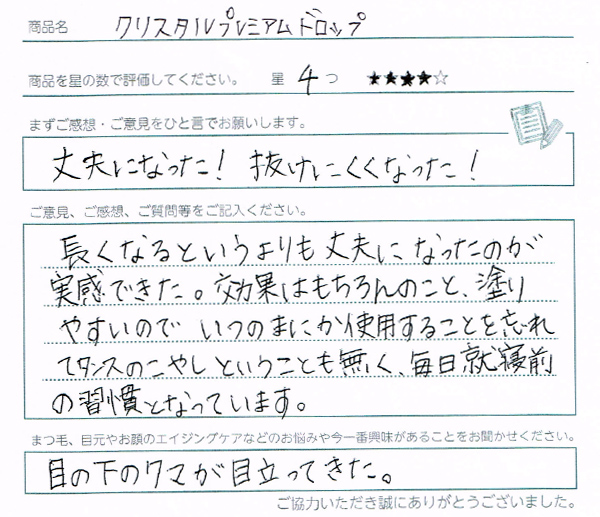 商品名 クリスタルプレミアムドロップ
商品を星の数で評価してください。 星 4 つ ★★★★☆
まずご感想・ご意見をひと言でお願いします。
丈夫になった! 抜けにくくなった!
ご意見、ご感想、ご質問等をご記入ください。
長くなるというよりも丈夫になったのが
実感できた。効果はもちろんのこと、塗り
やすいので いつのまにか使用することを忘れ
てタンスのこやしということも無く、毎日就寝前
の習慣となっています。
まつ毛、目元やお顔のエイジングケアなどのお悩みや今一番興味があることをお聞かせください。
目の下のクマが目立ってきた。
ご協力いただき誠にありがとうございました。